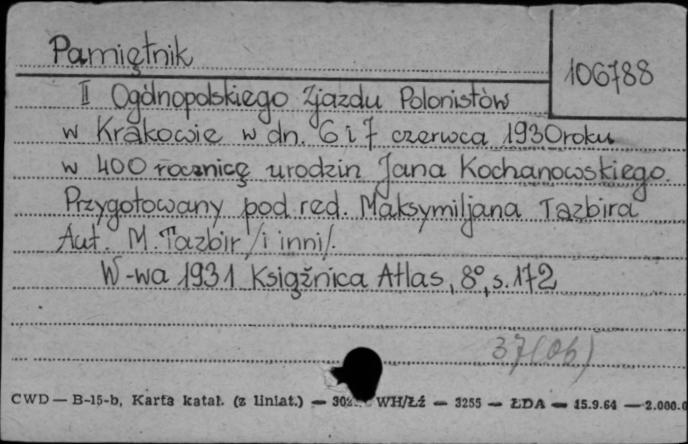 Pamiętnik
106788
II Ogólnopolskiego Zjazdu Polonistów
w Krakowie w dn. 6 i 7 czerwca 1930 roku
w 400 rocznicę urodzin Jana Kochanowskiego.
Przygotowany pod red. Maksymiljana Tazbira
Aut. M. Tazbir /i inni/.
W-wa 1931 Książnica Atlas, 8°, s. 172
37(06)
CWD — B-15-b, Karta katal. (z liniat.) — WH/Łź — 3255 — ŁDA — 15.9.64 — 2.000.0